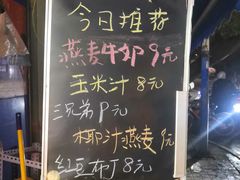 今日推荐
燕麦牛奶9元
玉米汁8元
三兄弟9元
椰汁燕麦9元
红豆布丁8元